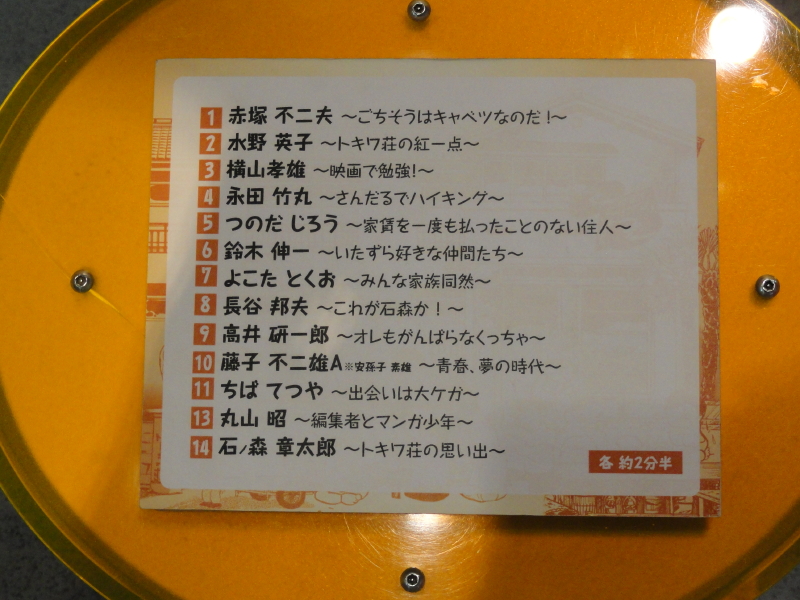 1 赤塚 不二夫 〜ごちそうはキャベツなのだ!〜
2 水野 英子 〜トキワ荘の紅一点〜
3 横山孝雄 〜映画で勉強!〜
4 永田 竹丸 〜さんだるでハイキング〜
5 つのだ じろう 〜家賃を一度も払ったことのない住人〜
6 鈴木 伸一 〜いたずら好きな仲間たち〜
7 よこた とくお 〜みんな家族同然〜
8 長谷 邦夫 〜これが石森か!〜
9 高井 研一郎 〜オレもがんばらなくっちゃ〜
10 藤子 不二雄A※安孫子 素雄 〜青春、夢の時代〜
11 ちば てつや 〜出会いは大ケガ〜
13 丸山 昭 〜編集者とマンガ少年〜
14 石ノ森 章太郎 〜トキワ荘の思い出〜
各 約2分半